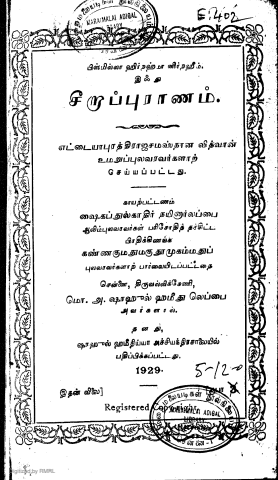 E.402
MARAIMALAI ADIGAL
LIBRARY
பிஸ்மில்லா ஹிர்றஹ்மா னிர்றஹீம்.
இஃது
சீறாப்புராணம்.
எட்டையாபுரத்திராஜசமஸ்தான வித்வான்
உமறுப்புலவரவர்களாற்
செய்யப்பட்டது.
காயற்பட்டணம்
ஷைகப்துல்காதிர் நயினார்லப்பை
ஆலிம்புலவரவர்கள் பரிசோதித் தச்சிட்ட
பிரதிக்கிணங்க
கண்ணகுமதுமகுதூமுகம்மதுப்
புலவரவர்களாற் பார்வையிடப்பட்டதை
சென்னை, திருவல்லிக்கேணி,
மொ. அ. ஷாஹுல் ஹமீது லெப்பை
அவர்களால்,
தனது,
ஷாஹுல் ஹமீதிய்யா அச்சியந்திரசாலையில்
பதிப்பிக்கப்பட்டது.
1929.
5-12-0
இதன் விலை]
Registered Copyright
MARAIMALAI ADIGAL
LIBRARY